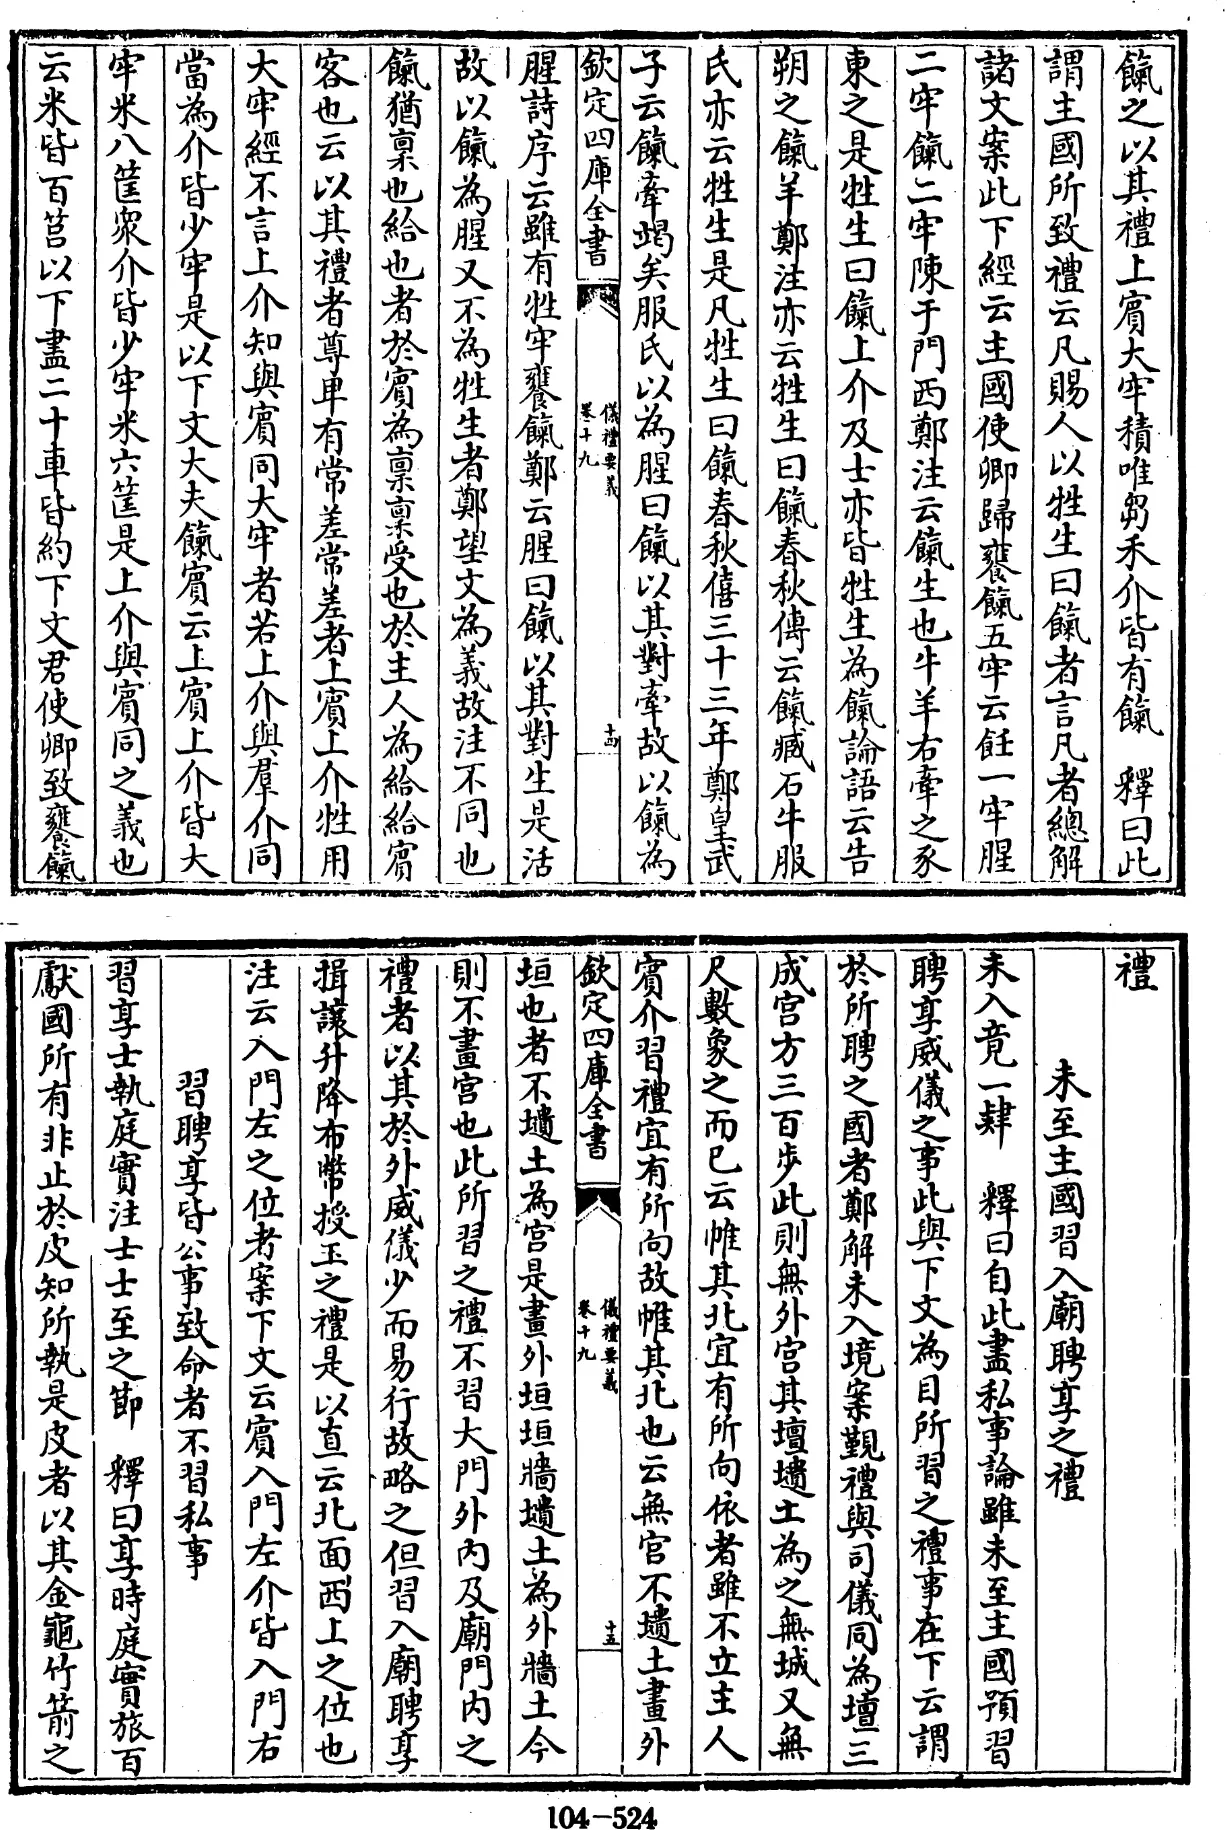 餼之以其禮上賓大牢積唯芻禾介皆有餼　釋曰此
謂主國所致禮云凡賜人以牲生曰餼者言凡者總解
諸文案此下經云主國使卿歸饔餼五牢云飪一牢腥
二牢餼二牢陳于門西鄭注云餼生也牛羊右牽之豕
東之是牲生曰餼上介及士亦皆牲生為餼論語云告
朔之餼羊鄭注亦云牲生曰餼春秋傳云餼臧石牛服
氏亦云牲生是凡牲生曰餼春秋僖三十三年鄭皇武
子云餼牽竭矣服氏以為腥曰餼以其對牽故以餼為
欽定四庫全書
儀禮要義
卷十九
十四
腥詩序云雖有牲牢饔餼鄭云腥曰餼以其對生是活
故以餼為腥又不為牲生者鄭望文為義故注不同也
餼猶稟也給也者於賓為稟稟受也於主人為給給賓
客也云以其禮者尊卑有常差常差者上賓上介牲用
大牢經不言上介知與賓同大牢者若上介與羣介同
當為介皆少牢是以下文大夫餼賓云上賓上介皆大
牢米八筐衆介皆少牢米六筐是上介與賓同之義也
云米皆百筥以下盡二十車皆約下文君使卿致饔餼
禮
未至主國習入廟聘享之禮
未入竟一肄　釋曰自此盡私事論雖未至主國預習
聘享威儀之事此與下文為目所習之禮事在下云謂
於所聘之國者鄭解未入境案覲禮與司儀同為壇三
成宫方三百步此則無外宫其壇壝土為之無城又無
尺數象之而已云帷其北宜有所向依者雖不立主人
賓介習禮宜有所向故帷其北也云無宫不壝土畫外
欽定四庫全書
儀禮要義
卷十九
十五
垣也者不壝土為宫是畫外垣垣牆壝土為外牆土今
則不畫宫也此所習之禮不習大門外内及廟門内之
禮者以其於外威儀少而易行故略之但習入廟聘享
揖讓升降布幣授玉之禮是以直云北面西上之位也
注云入門左之位者案下文云賓入門左介皆入門右
習聘享皆公事致命者不習私事
習享士執庭實注士士至之節　釋曰享時庭實旅百
獻國所有非止於皮知所執是皮者以其金龜竹箭之
104-524